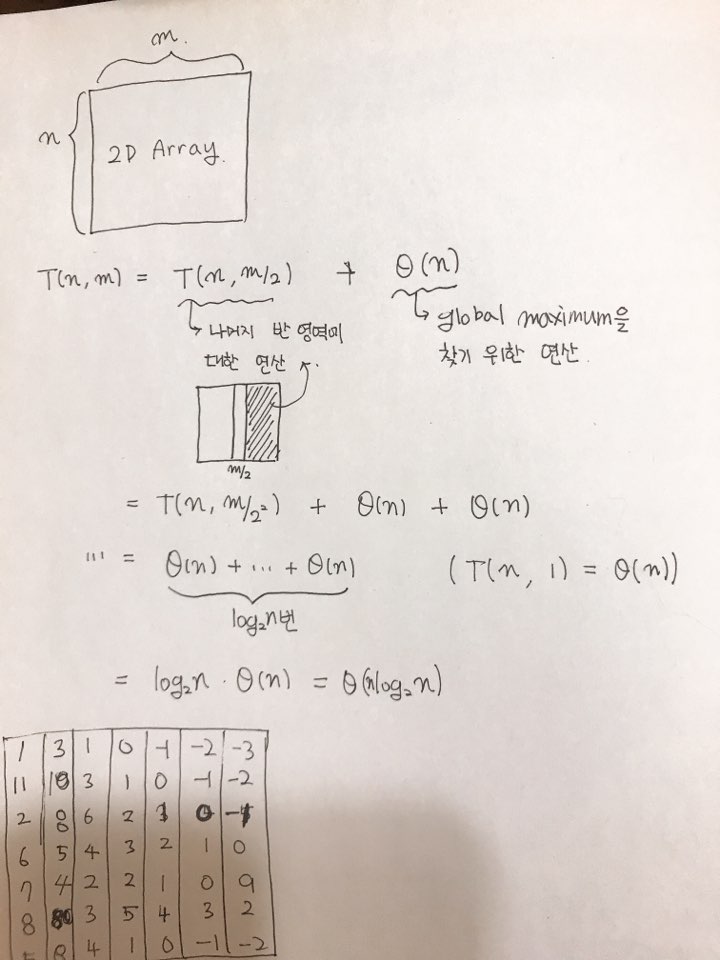 m.
n
2D Array.
T(n,m) = T(n, m/2) + Θ(n)
↳ 나머지 반 영역에
대한 연산
↳ global maximum을
찾기 위한 연산.
m/2
= T(n, m/2²) + Θ(n) + Θ(n)
''' = Θ(n) + ... + Θ(n) (T(n, 1) = Θ(n))
log₂n번
= log₂n · Θ(n) = Θ(nlog₂n)
1 3 1 0 -1 -2 -3
11 10 3 1 0 -1 -2
2 8 6 2 0
6 5 4 3 2 1 0
7 4 2 2 1 0 9
8 3 5 4 3 2
8 4 1 0 -1 -2